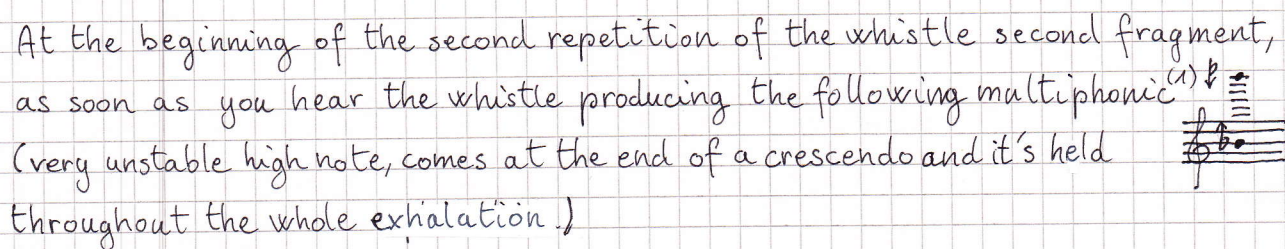 At the beginning of the second repetition of the whistle second fragment,
as soon as you hear the whistle producing the following multiphonic(1)
(very unstable high note, comes at the end of a crescendo and it's held
throughout the whole exhalation.)